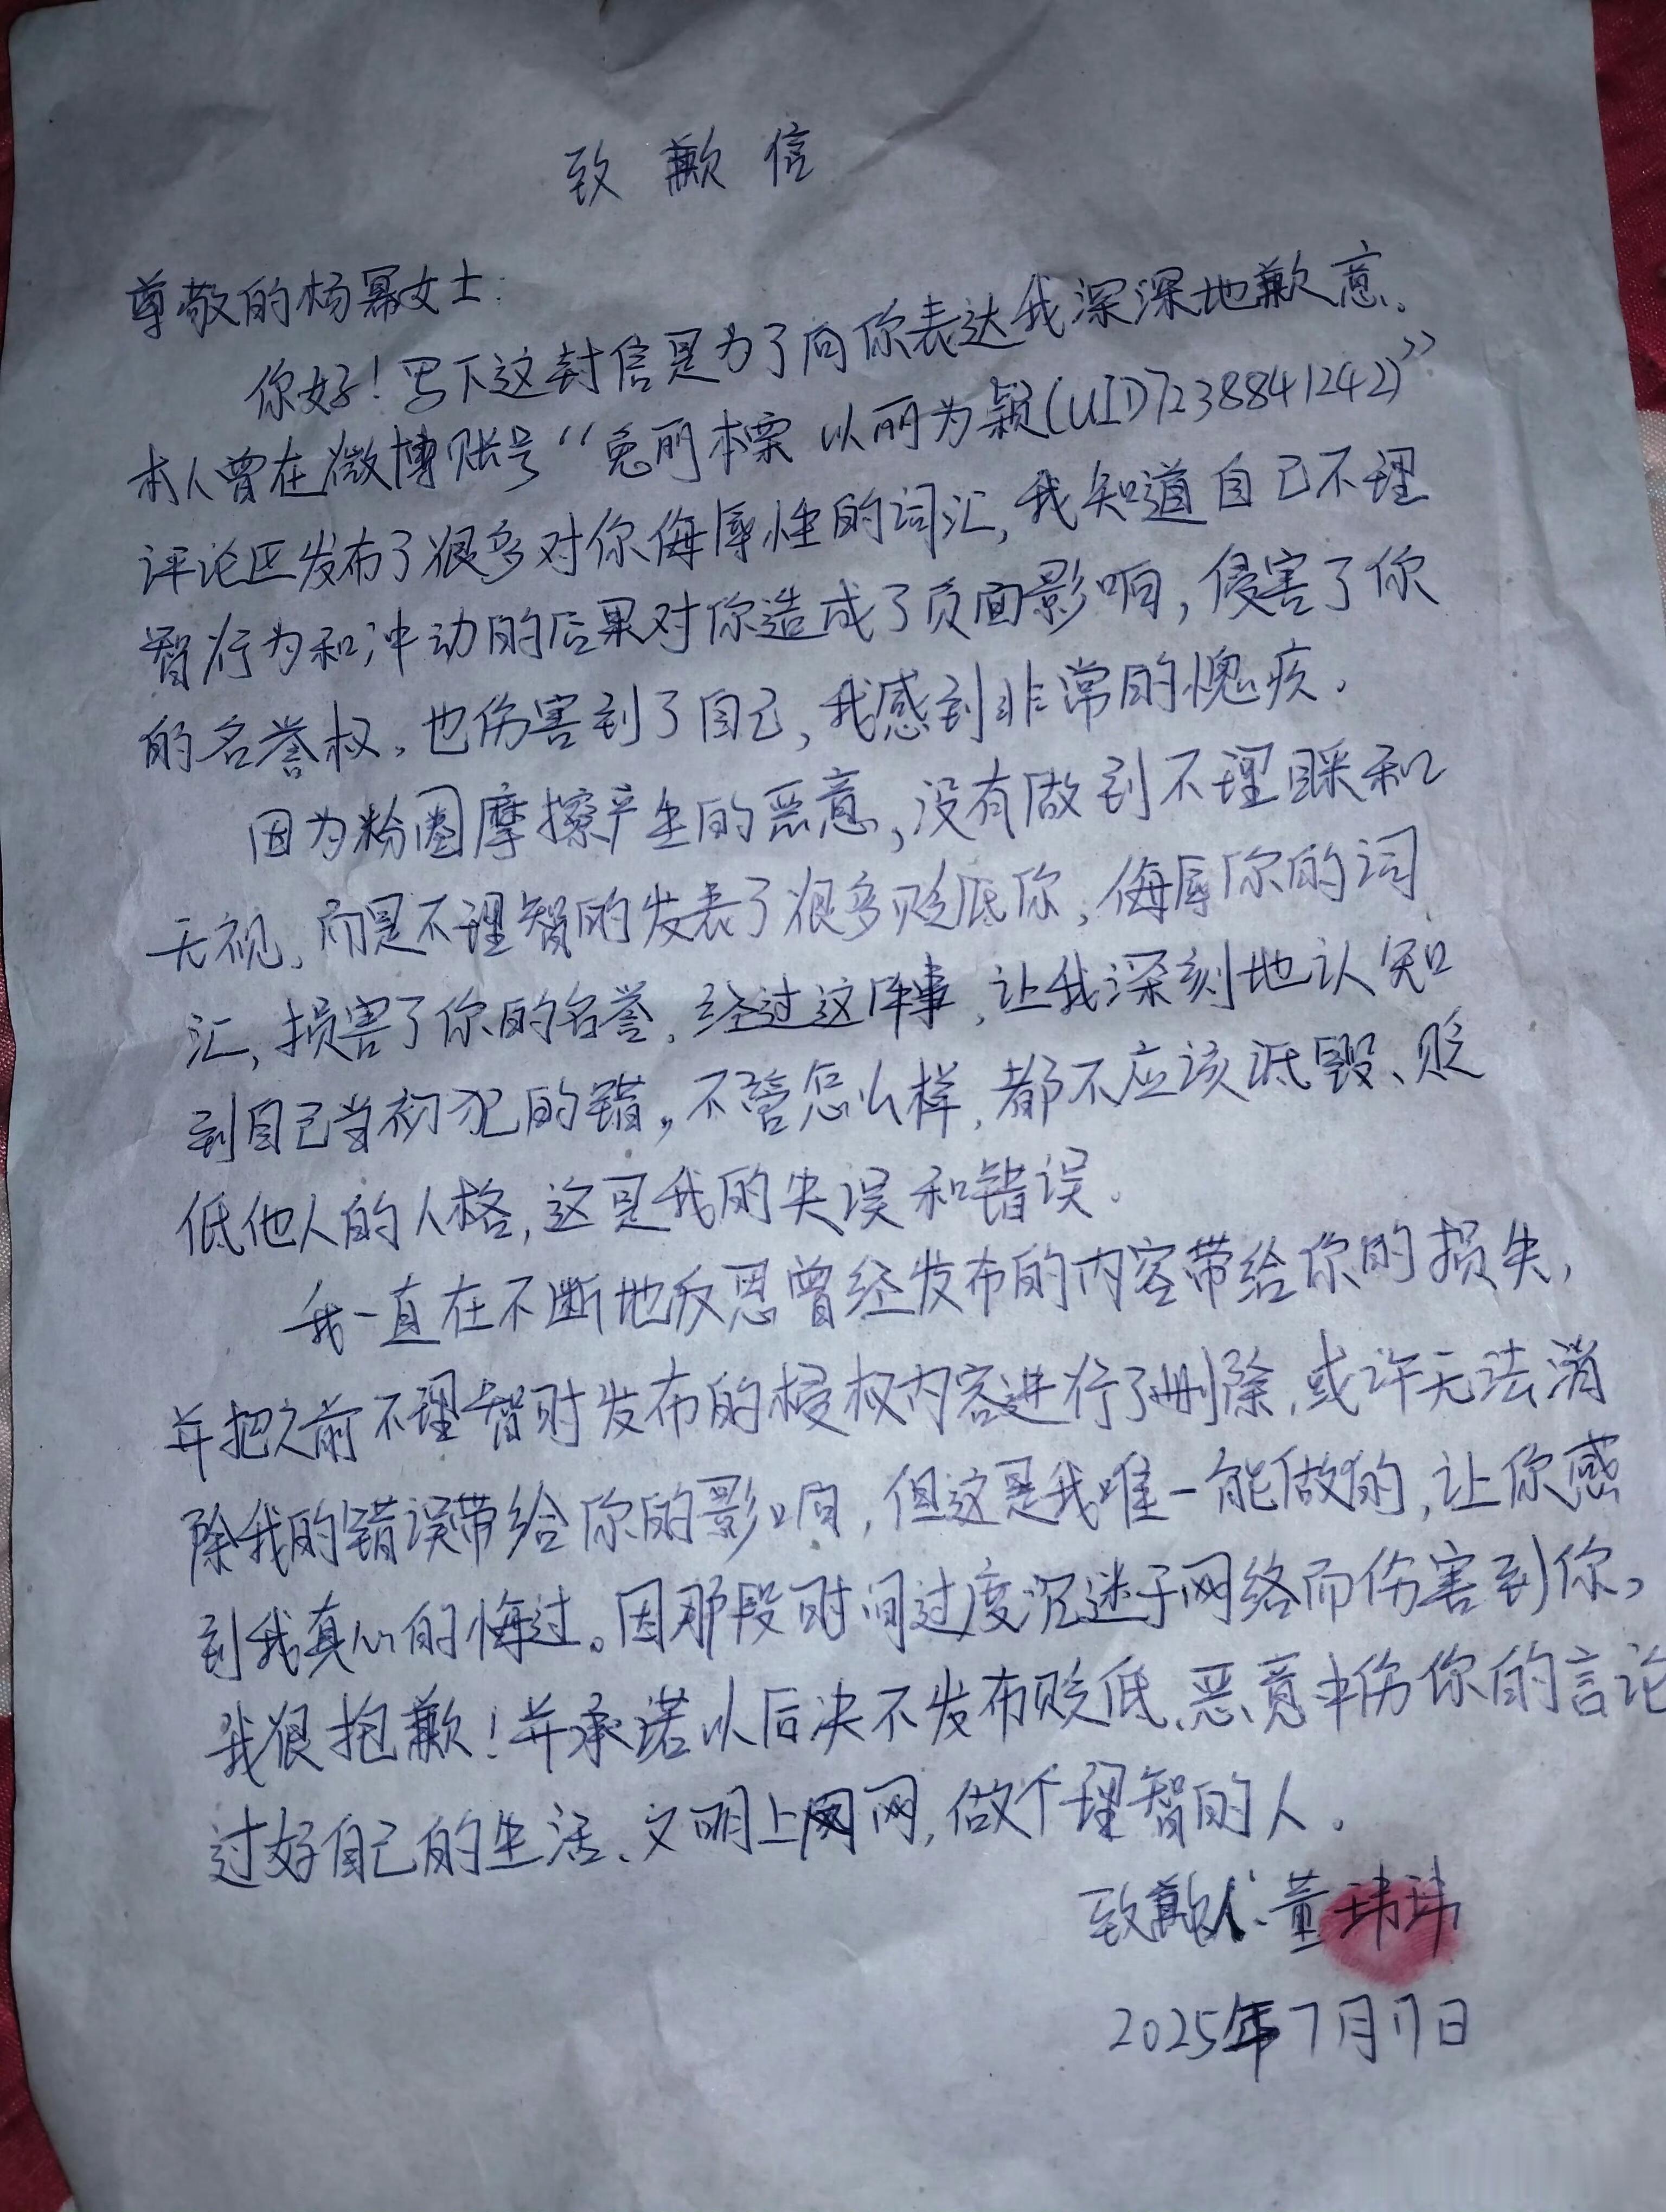 致歉信
尊敬的杨幂女士:
你好!写下这封信是为了向你表达我深深地歉意。
本人曾在微博账号“兔丽本栗 以丽为颖(UID7238841242)”
评论区发布了很多对你侮辱性的词汇,我知道自己不理
智行为和冲动的后果对你造成了负面影响,侵害了你
的名誉权,也伤害到了自己,我感到非常的愧疚.
因为粉圈摩擦产生的恶意,没有做到不理睬和
无视,而是不理智的发表了很多贬低你,侮辱你的词
汇,损害了你的名誉.经过这件事,让我深刻地认知
到自己当初犯的错,不管怎么样,都不应该诋毁、贬
低他人的人格,这是我的失误和错误.
我一直在不断地反思曾经发布的内容带给你的损失,
并把之前不理智时发布的侵权内容进行了删除,或许无法消
除我的错误带给你的影响,但这是我唯一能做的,让你感
到我真心的悔过。因那段时间过度沉迷于网络而伤害到你,
我很抱歉!并承诺以后决不发布贬低、恶意中伤你的言论
过好自己的生活、文明上网,做个理智的人.
致歉人:董玮玮
2025年7月17日